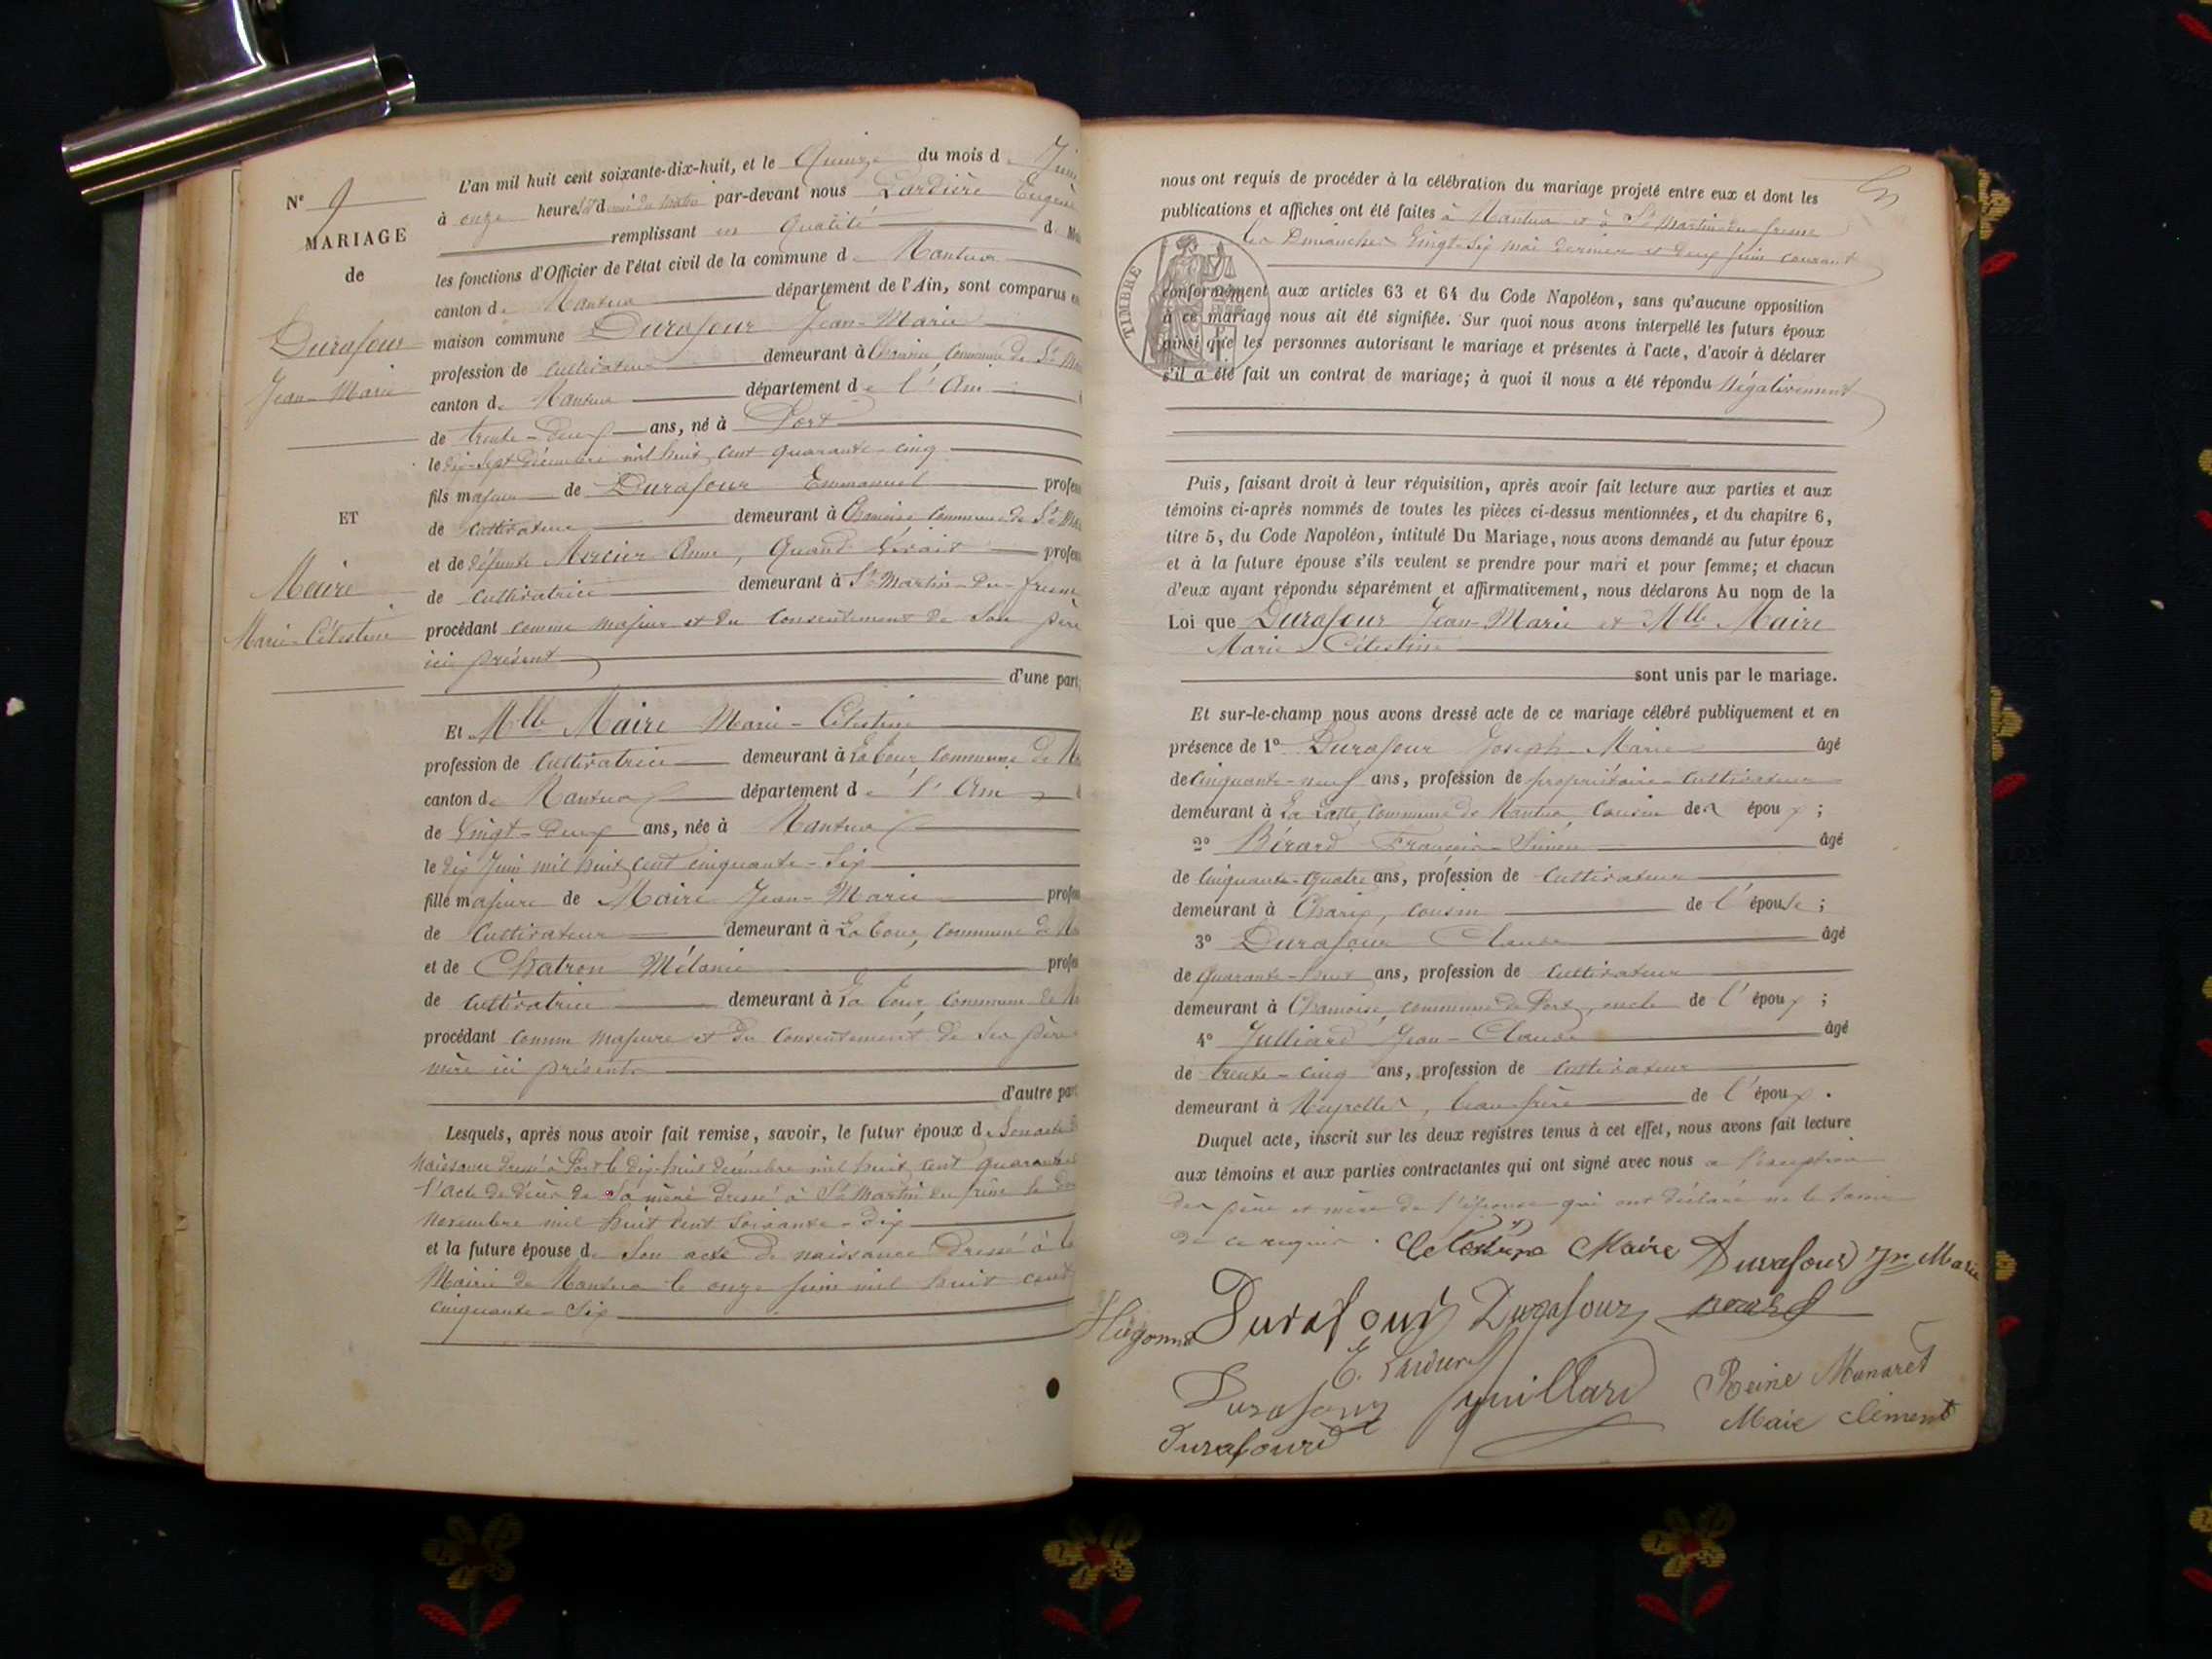 N° 9
MARIAGE
de
Durafour
Jean-Marie
ET
Maire
Marie-Célestine
L'an mil huit cent soixante-dix-huit, et le Quinze du mois de Juin
à onze heures et demi du matin par-devant nous Lardière Eugène
remplissant en qualité de
les fonctions d'Officier de l'état civil de la commune de Nantua
canton de Nantua département de l'Ain, sont comparus en
maison commune Durafour Jean-Marie
profession de cultivateur demeurant à Chamoise commune de St
canton de Nantua département de l'Ain
de trente-deux ans, né à Port
le dix-sept décembre mil huit cent quarante-cinq
fils majeur de Durafour Emmanuel
de cultivateur demeurant à Chamoise commune de St
et de défunte Mercier Anne, quand vivait
de cultivatrice demeurant à St Martin-du-fresne
procédant comme majeur et du consentement de son père
ici présent
d'une part;
Et Mlle Maire Marie-Célestine
profession de cultivatrice demeurant à La Cour commune de
canton de Nantua département de l'Ain
de vingt-deux ans, née à Nantua
le dix juin mil huit cent cinquante-six
fille majeure de Maire Jean-Marie
de cultivateur demeurant à La Cour, commune de
et de Chatron Mélanie
de cultivatrice demeurant à La Cour, commune de
procédant comme majeure et du consentement de ses père
mère ici présents
d'autre part
Lesquels, après nous avoir fait remise, savoir, le futur époux de son acte de
naissance dressé à Port le dix-huit décembre mil huit cent quarante
l'acte de décès de sa mère dressé à St Martin du frêne le
novembre mil huit cent soixante-dix
et la future épouse de son acte de naissance dressé à la
Mairie de Nantua le onze juin mil huit cent
cinquante-six
nous ont requis de procéder à la célébration du mariage projeté entre eux et dont les
publications et affiches ont été faites à Nantua et à St Martin-du-fresne
les Dimanches vingt-six mai dernier et deux juin courant
TIMBRE
conformément aux articles 63 et 64 du Code Napoléon, sans qu'aucune opposition
à ce mariage nous ait été signifiée. Sur quoi nous avons interpellé les futurs époux
ainsi que les personnes autorisant le mariage et présentes à l'acte, d'avoir à déclarer
s'il a été fait un contrat de mariage; à quoi il nous a été répondu négativement
Puis, faisant droit à leur réquisition, après avoir fait lecture aux parties et aux
témoins ci-après nommés de toutes les pièces ci-dessus mentionnées, et du chapitre 6,
titre 5, du Code Napoléon, intitulé Du Mariage, nous avons demandé au futur époux
et à la future épouse s'ils veulent se prendre pour mari et pour femme; et chacun
d'eux ayant répondu séparément et affirmativement, nous déclarons Au nom de la
Loi que Durafour Jean-Marie et Mlle Maire
Marie Célestine
sont unis par le mariage.
Et sur-le-champ nous avons dressé acte de ce mariage célébré publiquement et en
présence de 1° Durafour Joseph-Marie âgé
de cinquante-neuf ans, profession de propriétaire-cultivateur
demeurant à La Latte, commune de Nantua, cousin des époux;
2° Bérard François-Siméon âgé
de cinquante-quatre ans, profession de cultivateur
demeurant à Charix, cousin de l'épouse;
3° Durafour Claude âgé
de quarante-huit ans, profession de cultivateur
demeurant à Chamoise, commune de Port, oncle de l'époux;
4° Julliard Jean-Claude âgé
de trente-cinq ans, profession de cultivateur
demeurant à Neyrolles, beau-frère de l'époux.
Duquel acte, inscrit sur les deux registres tenus à cet effet, nous avons fait lecture
aux témoins et aux parties contractantes qui ont signé avec nous à l'exception
des père et mère de l'épouse qui ont déclaré ne le savoir
de ce requis. Celestine Maire Durafour Jn Marie
Durafour Durafour
E. Lardière
Durafour Juillard Reine Monaret
Durafourd Maie Clément